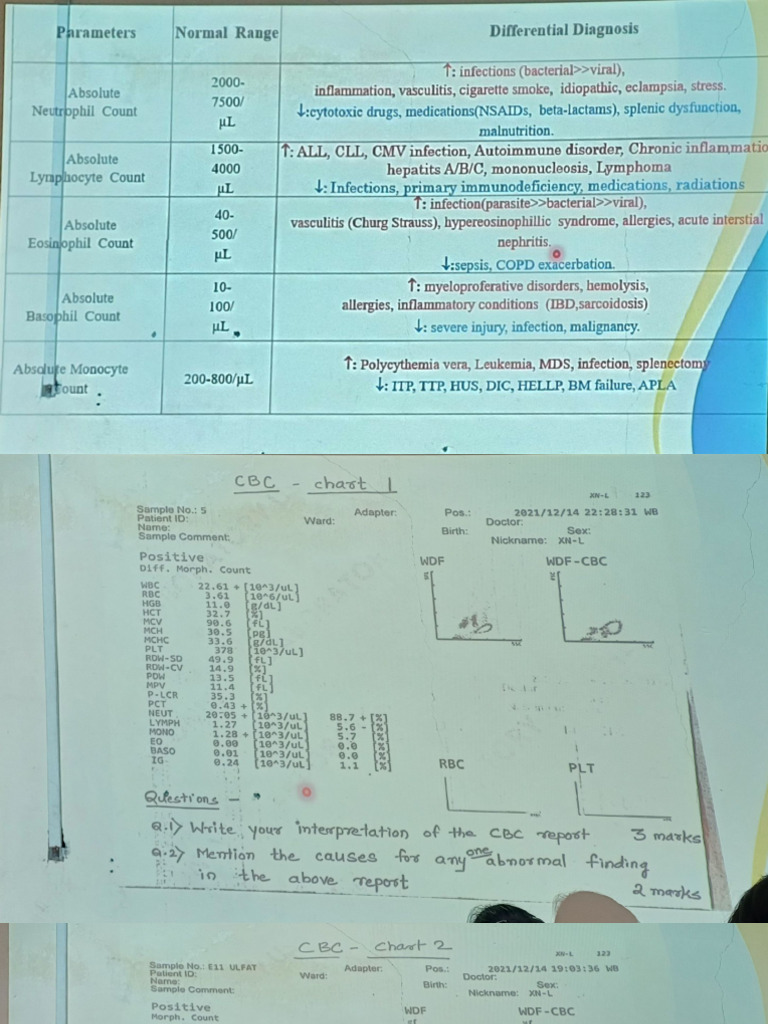 Parameters Normal Range Differential Diagnosis
Absolute Neutrophil Count
2000-
7500/
µL
↑: infections (bacterial>>viral),
inflammation, vasculitis, cigarette smoke, idiopathic, eclampsia, stress.
↓:cytotoxic drugs, medications(NSAIDs, beta-lactams), splenic dysfunction,
malnutrition.
Absolute
Lymphocyte Count
1500-
4000
µL
↑: ALL, CLL, CMV infection, Autoimmune disorder, Chronic inflammatio
hepatits A/B/C, mononucleosis, Lymphoma
↓: Infections, primary immunodeficiency, medications, radiations
Absolute
Eosinophil Count
40-
500/
µL
↑: infection(parasite>>bacterial>>viral),
vasculitis (Churg Strauss), hypereosinophillic syndrome, allergies, acute interstial
nephritis.
↓:sepsis, COPD exacerbation.
Absolute
Basophil Count
10-
100/
µL
↑: myeloproferative disorders, hemolysis,
allergies, inflammatory conditions (IBD,sarcoidosis)
↓: severe injury, infection, malignancy.
Absolute Monocyte
Count
200-800/µL
↑: Polycythemia vera, Leukemia, MDS, infection, splenectomy
↓: ITP, TTP, HUS, DIC, HELLP, BM failure, APLA
CBC - chart 1
XN-L 123
Sample No.: 5 Adapter: Pos.: 2021/12/14 22:28:31 WB
Patient ID: Ward: Doctor:
Name: Birth: Sex:
Sample Comment: Nickname: XN-L
Positive
Diff. Morph. Count
WDF WDF-CBC
WBC 22.61 + [10^3/uL]
RBC 3.61 [10^6/uL]
HGB 11.0 [g/dL]
HCT 32.7 [%]
MCV 90.6 [fL]
MCH 30.5 [pg]
MCHC 33.6 [g/dL]
PLT 378 [10^3/uL]
RDW-SD 49.9 [fL]
RDW-CV 14.9 [%]
PDW 13.5 [fL]
MPV 11.4 [fL]
P-LCR 35.3 [%]
PCT 0.43 + [%]
NEUT 20.05 + [10^3/uL] 88.7 + [%]
LYMPH 1.27 [10^3/uL] 5.6 - [%]
MONO 1.28 + [10^3/uL] 5.7 [%]
EO 0.00 [10^3/uL] 0.0 [%]
BASO 0.01 [10^3/uL] 0.0 [%]
IG 0.24 [10^3/uL] 1.1 [%]
RBC PLT
Questions -
Q.1) Write your interpretation of the CBC report 3 marks
Q.2) Mention the causes for any one abnormal finding
in the above report
2 marks
CBC - chart 2
XN-L 123
Sample No.: E11 ULFAT Adapter: Pos.: 2021/12/14 19:03:36 WB
Patient ID: Ward: Doctor:
Name: Birth: Sex:
Sample Comment: Nickname: XN-L
Positive
Morph. Count
WDF WDF-CBC